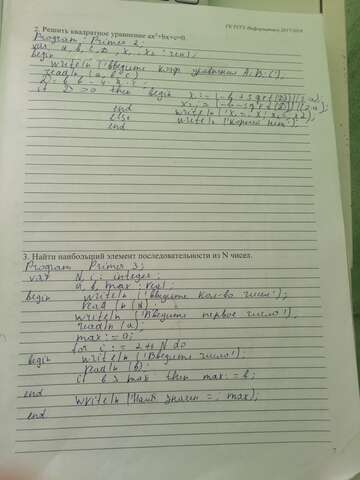 ГК РГГУ Информатика 2017/2018
2. Решить квадратное уравнение ax²+bx+c=0.
Program Primer 2;
var a, b, c, D, x1, x2 : real;
begin
writeln ('введите коэф. уравнения A, B, C');
readln (a, b, c)
if D >= 0 then begin x1 := (-b + sqrt(D))/(2*a);
x2 := (-b - sqrt(D))/(2*a);
end
else
writeln ('Корней нет')
end
3. Найти наибольший элемент последовательности из N чисел.
Program Primer 3;
var N, i : integer;
a, b, max : real;
begin writeln ('введите кол-во чисел');
readln (N);
writeln ('Введите первое число');
readln (a);
max := a;
for i := 2 to N do
begin writeln ('Введите число');
readln (b);
if b > max then max := b;
end
writeln ('Наиб значен = , max);
end